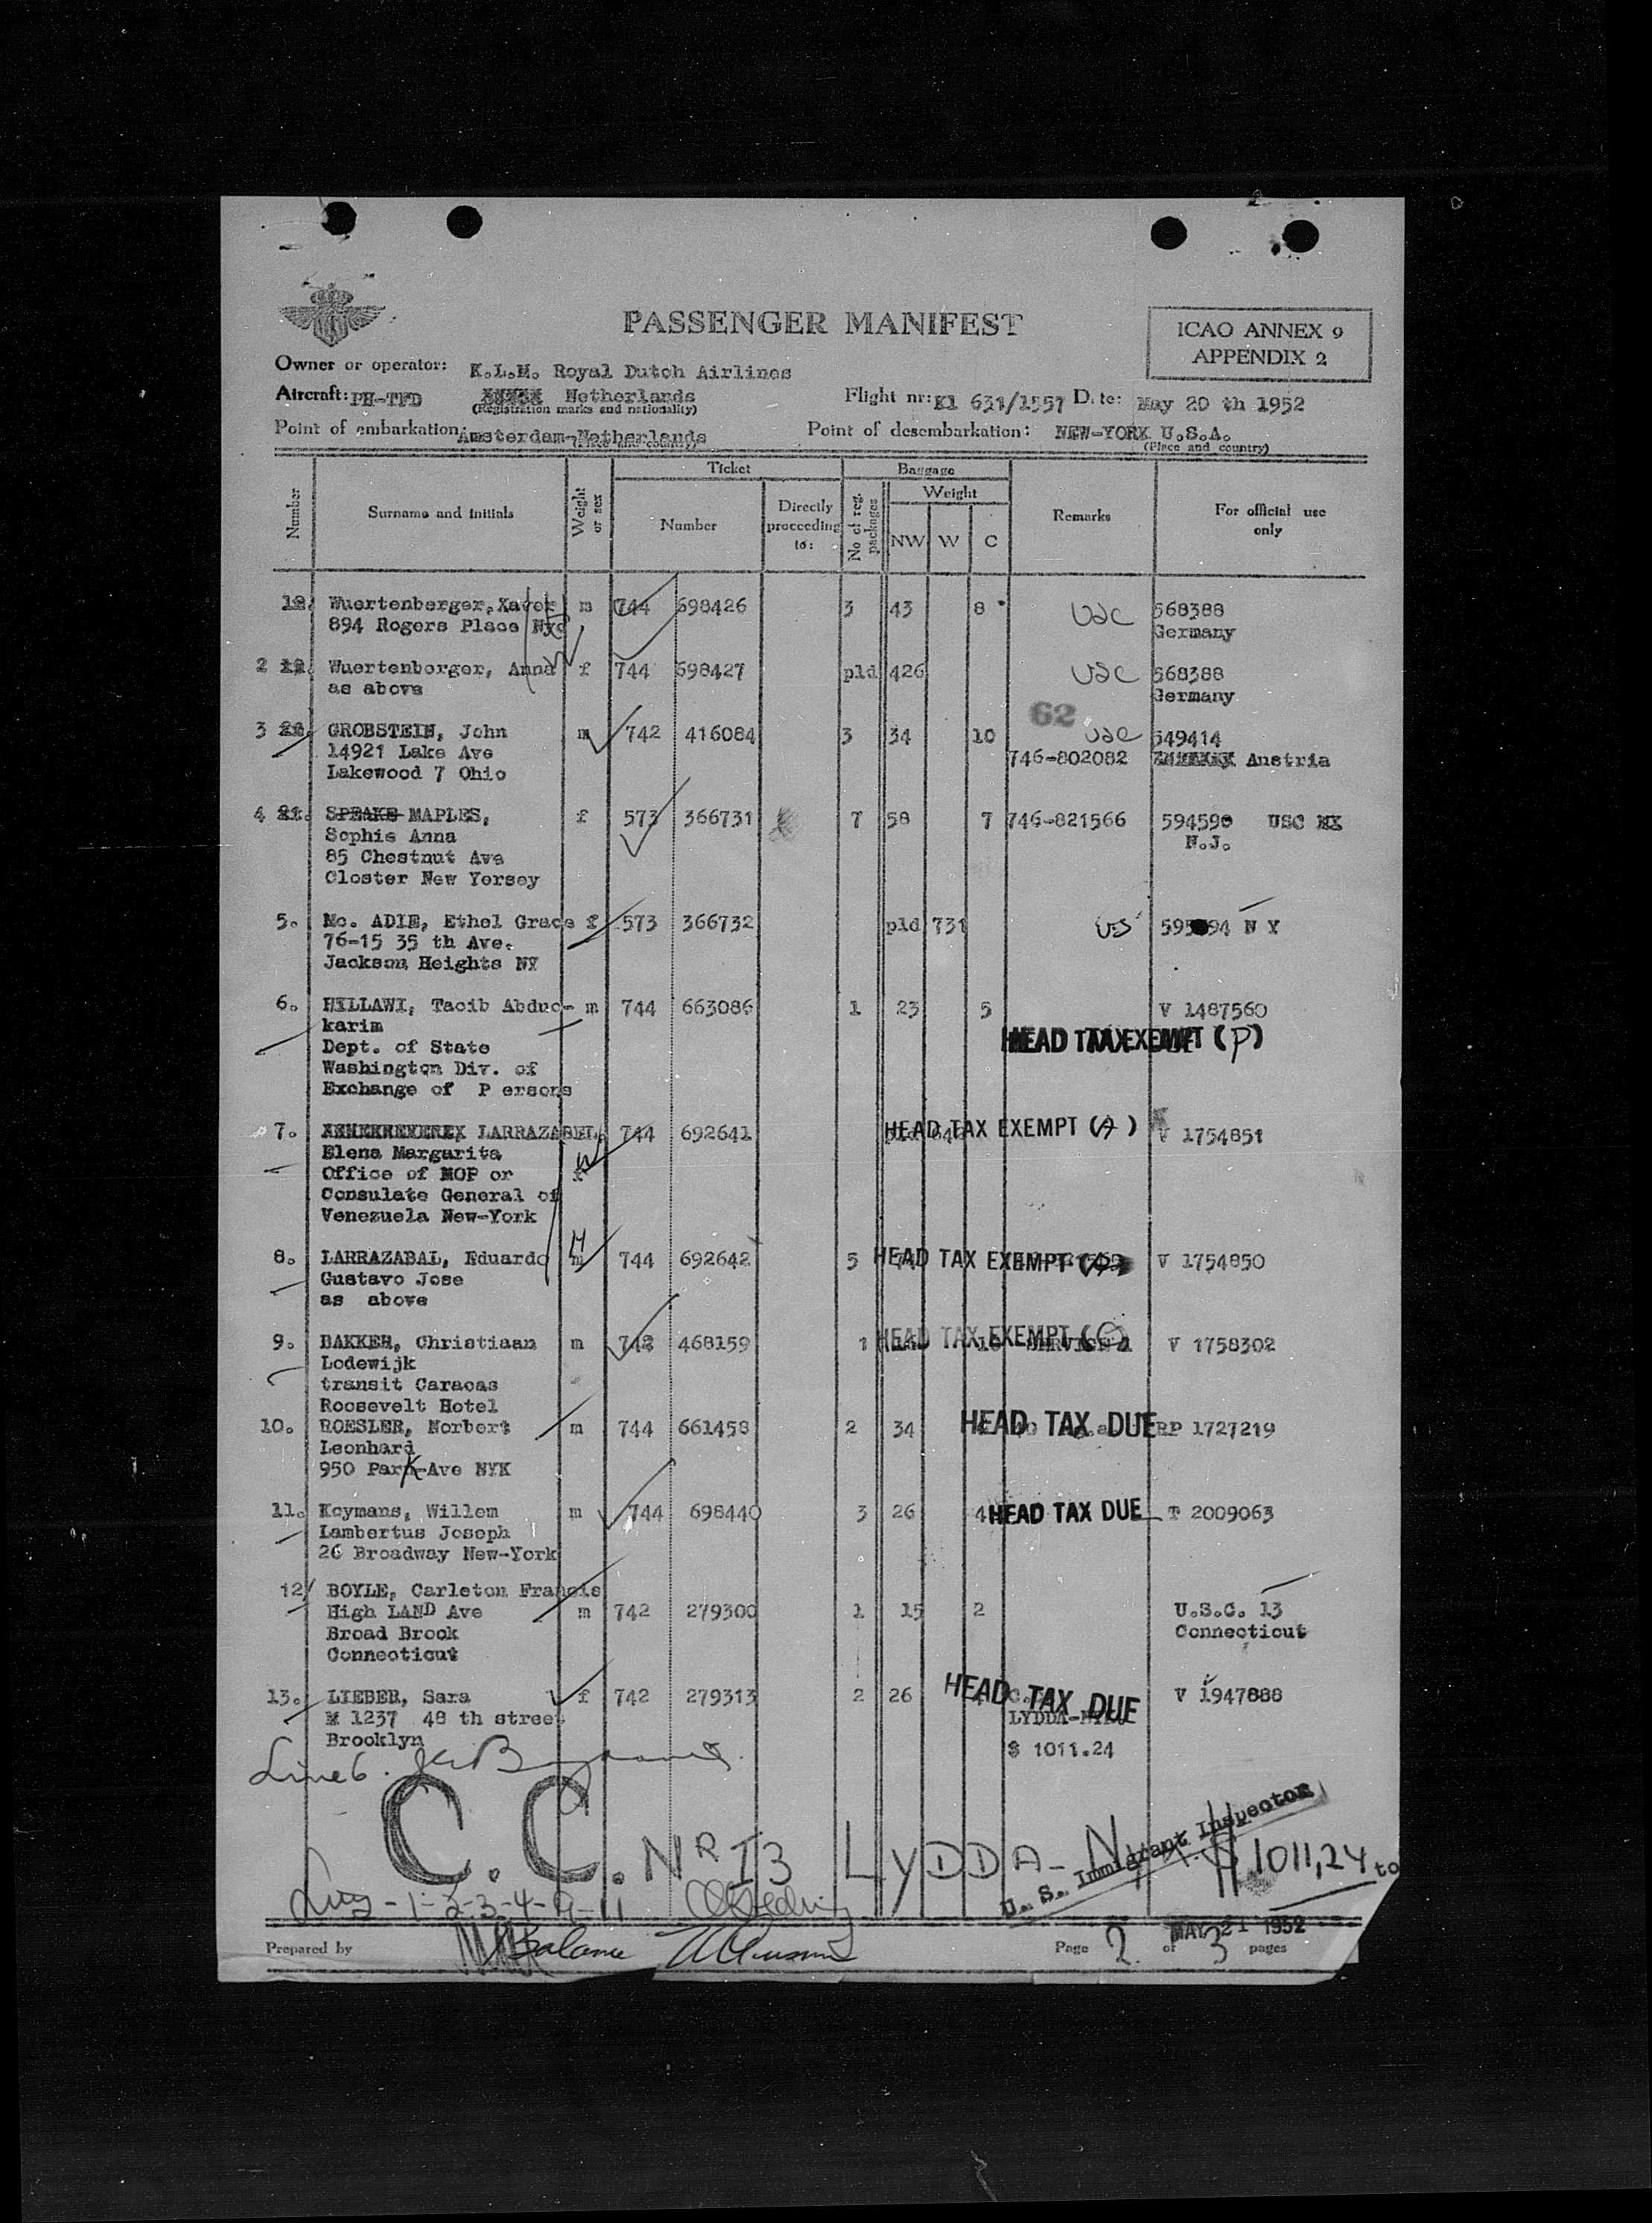 PASSENGER MANIFEST
ICAO ANNEX 9
APPENDIX 2
Owner or operator: K.L.M. Royal Dutch Airlines
Aircraft: PH-TFD Netherlands Flight nr: Kl 631/1557 Date: May 20 th 1952
(Registration marks and nationality)
Point of embarkation: Amsterdam-Netherlands Point of desembarkation: NEW-YORK U.S.A.
(Place and country) (Place and country)
Number Surname and initials Weight or sex Ticket Number Directly proceeding to: Baggage No of reg. packages Weight NW W C Remarks For official use only
Wuertenberger, Xaver m 744 698426 3 43 8 USC 568388
894 Rogers Place Nyc Germany
2 Wuertenberger, Anna f 744 698427 pld 426 USC 568388
as above Germany
62
3 GROBSTEIN, John m 742 416084 3 34 10 USC 549414
14921 Lake Ave 746-802082 Austria
Lakewood 7 Ohio
4 21. SPEAKE MAPLES, f 573 366731 7 58 7 746-821566 594590 USC
Sophie Anna N.J.
85 Chestnut Ave
Closter New Yersey
5. Mc. ADIE, Ethel Grace f 573 366732 pld 731 US N Y
76-15 35 th Ave.
Jackson Heights NY
6. HILLAWI, Tacib Abduc- m 744 663086 1 23 5 V 1487560
karim HEAD TAX EXEMPT (P)
Dept. of State
Washington Div. of
Exchange of P ersons
7. LARRAZABEL, 744 692641 HEAD TAX EXEMPT (A) V 1754851
Elena Margarita
Office of MOP or f
Consulate General of
Venezuela New-York
8. LARRAZABAL, Eduardo m 744 692642 5 HEAD TAX EXEMPT V 1754850
Gustavo Jose
as above
9. BAKKER, Christiaan m 742 468159 1 HEAD TAX EXEMPT (C) V 1758302
Lodewijk
transit Caracas
Roosevelt Hotel
10. ROESLER, Norbert m 744 661458 2 34 HEAD TAX DUE RP 1727219
Leonhard
950 Park Ave NYK
11. Koymans, Willem m 744 698440 3 26 4 HEAD TAX DUE T 2009063
Lambertus Joseph
26 Broadway New-York
12 BOYLE, Carleton Francis
High LAND Ave m 742 279300 1 15 2 U.S.C. 13
Broad Brook Connecticut
Connecticut
13. LIEBER, Sara f 742 279313 2 26 HEAD TAX DUE V 1947888
1237 48 th street LYDDA-
Brooklyn $ 1011.24
Line 6.
C.C. NR 13 LYDDA- $ 1011,24 to
U. S. Immigrant Inspector
-1-2-3-4-9-11
MAY 21 1952
Prepared by Balance Page 2 of 3 pages